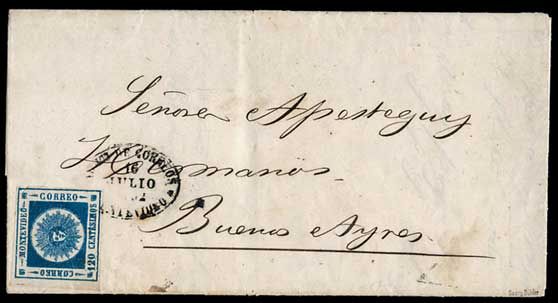 Señores Apesteguy
Hermanos
Buenos Ayres
DE CORREOS
16
JULIO
MONTEVIDEO
CORREO
MONTEVIDEO
120 CENTESIMOS
CORREO